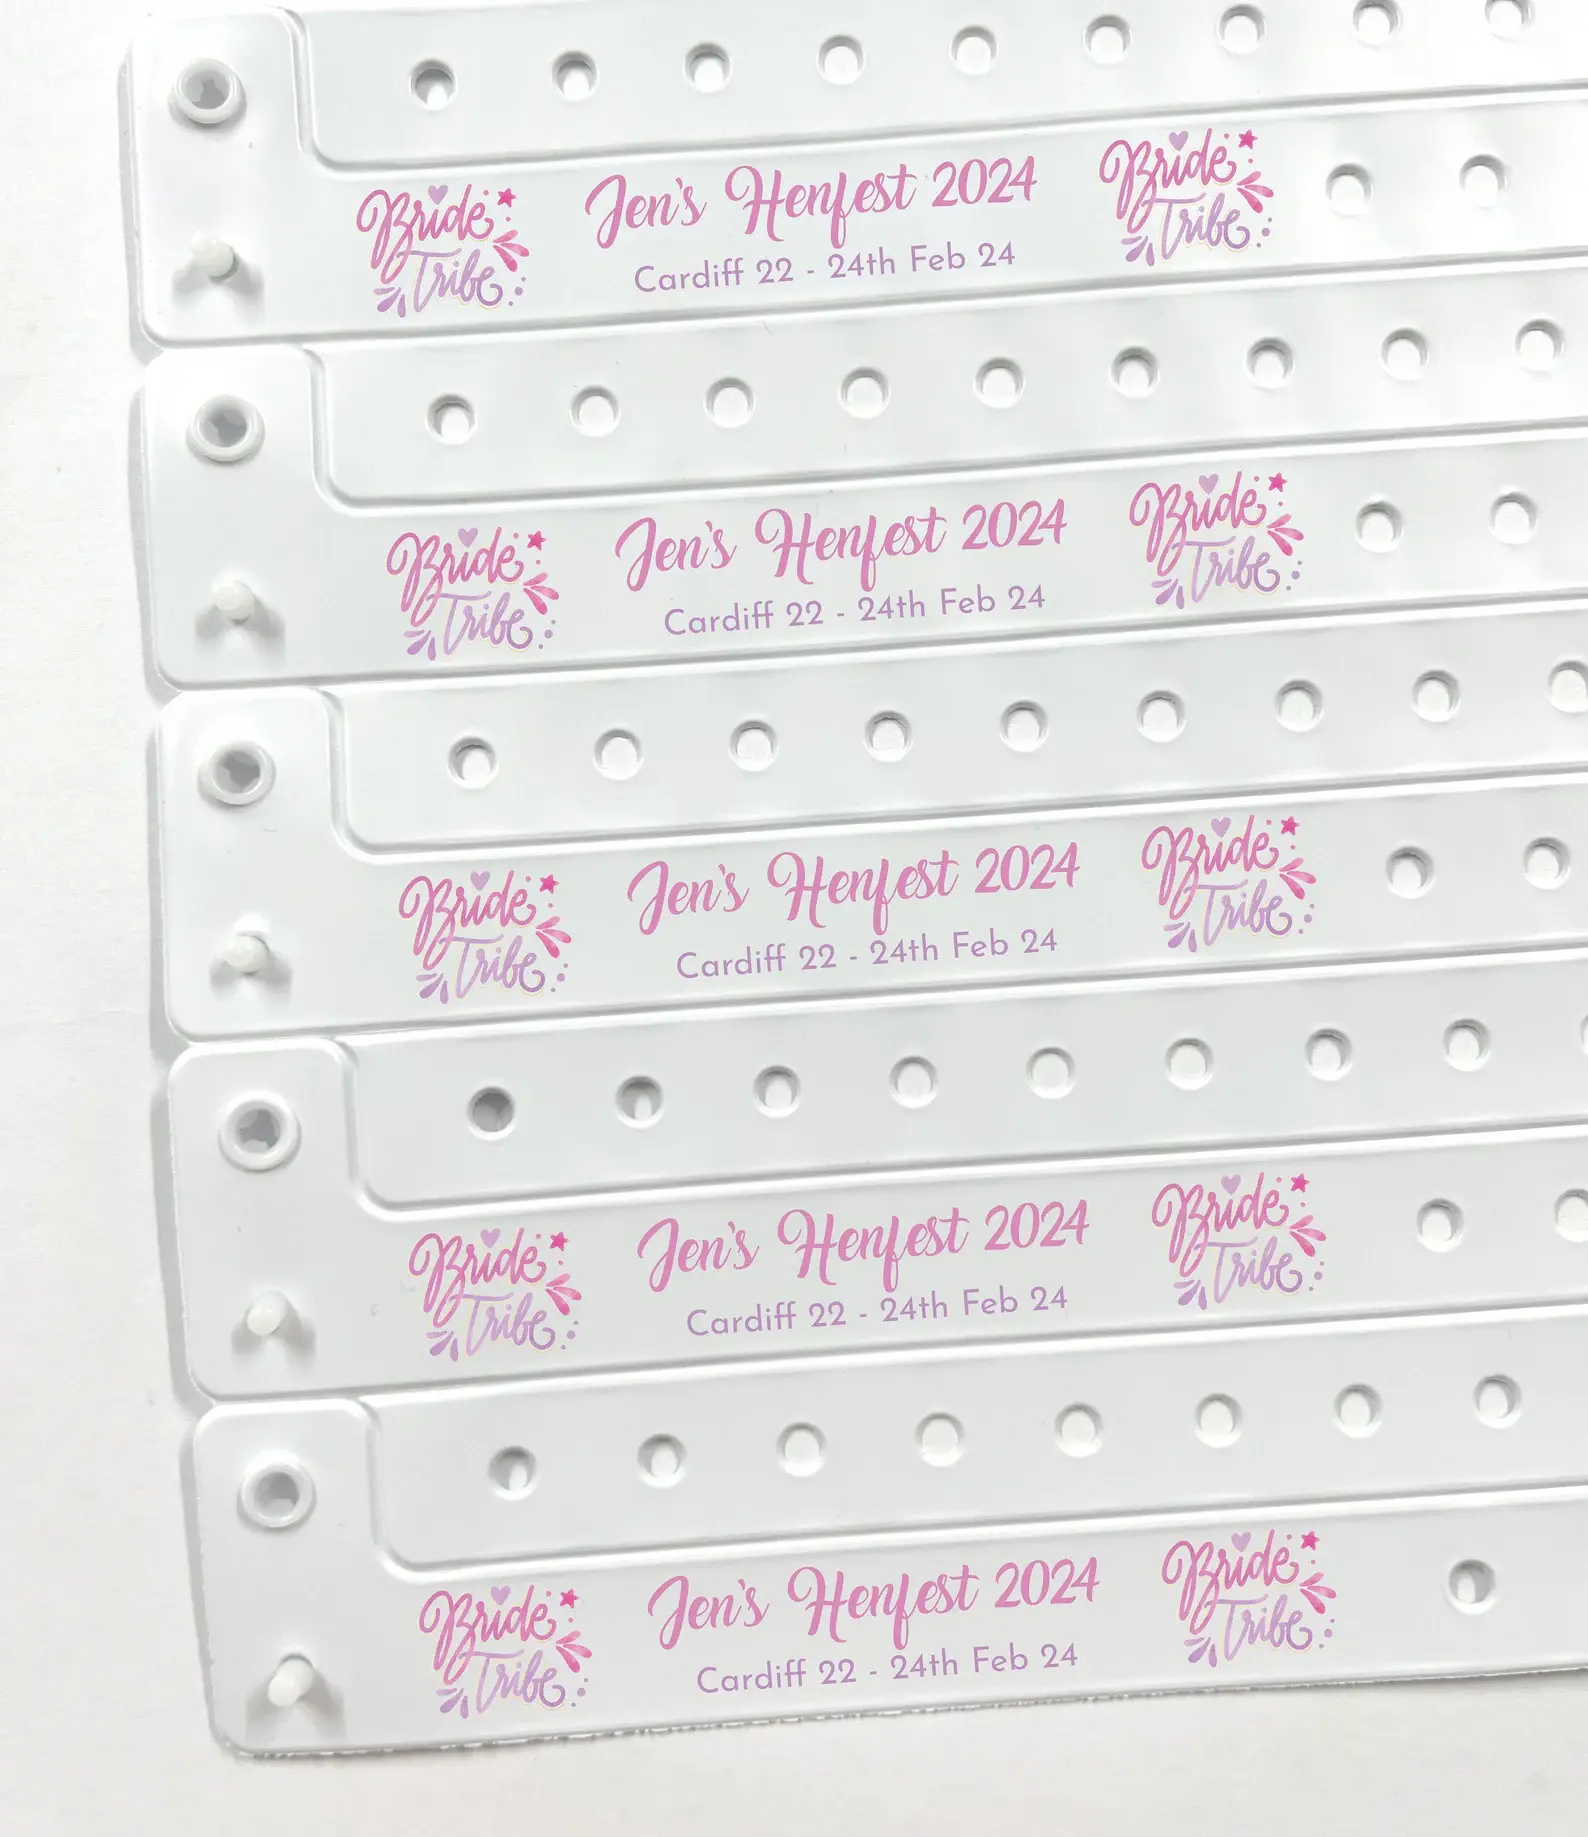 Bride Tribe
Jen's Henfest 2024
Cardiff 22 - 24th Feb 24
Bride Tribe
Bride Tribe
Jen's Henfest 2024
Cardiff 22 - 24th Feb 24
Bride Tribe
Bride Tribe
Jen's Henfest 2024
Cardiff 22 - 24th Feb 24
Bride Tribe
Bride Tribe
Jen's Henfest 2024
Cardiff 22 - 24th Feb 24
Bride Tribe
Bride Tribe
Jen's Henfest 2024
Cardiff 22 - 24th Feb 24
Bride Tribe